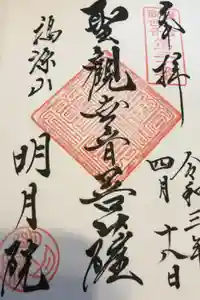 奉拝
令和三年
四月十八日
聖観世音菩薩
福源山
明月院